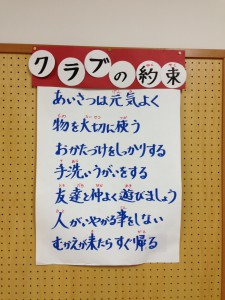 クラブの約束
あいさつは元気よく
物を大切に使う
おかたづけをしっかりする
手洗いうがいをする
友達と仲よく遊びましょう
人がいやがる事をしない
むかえが来たらすぐ帰る